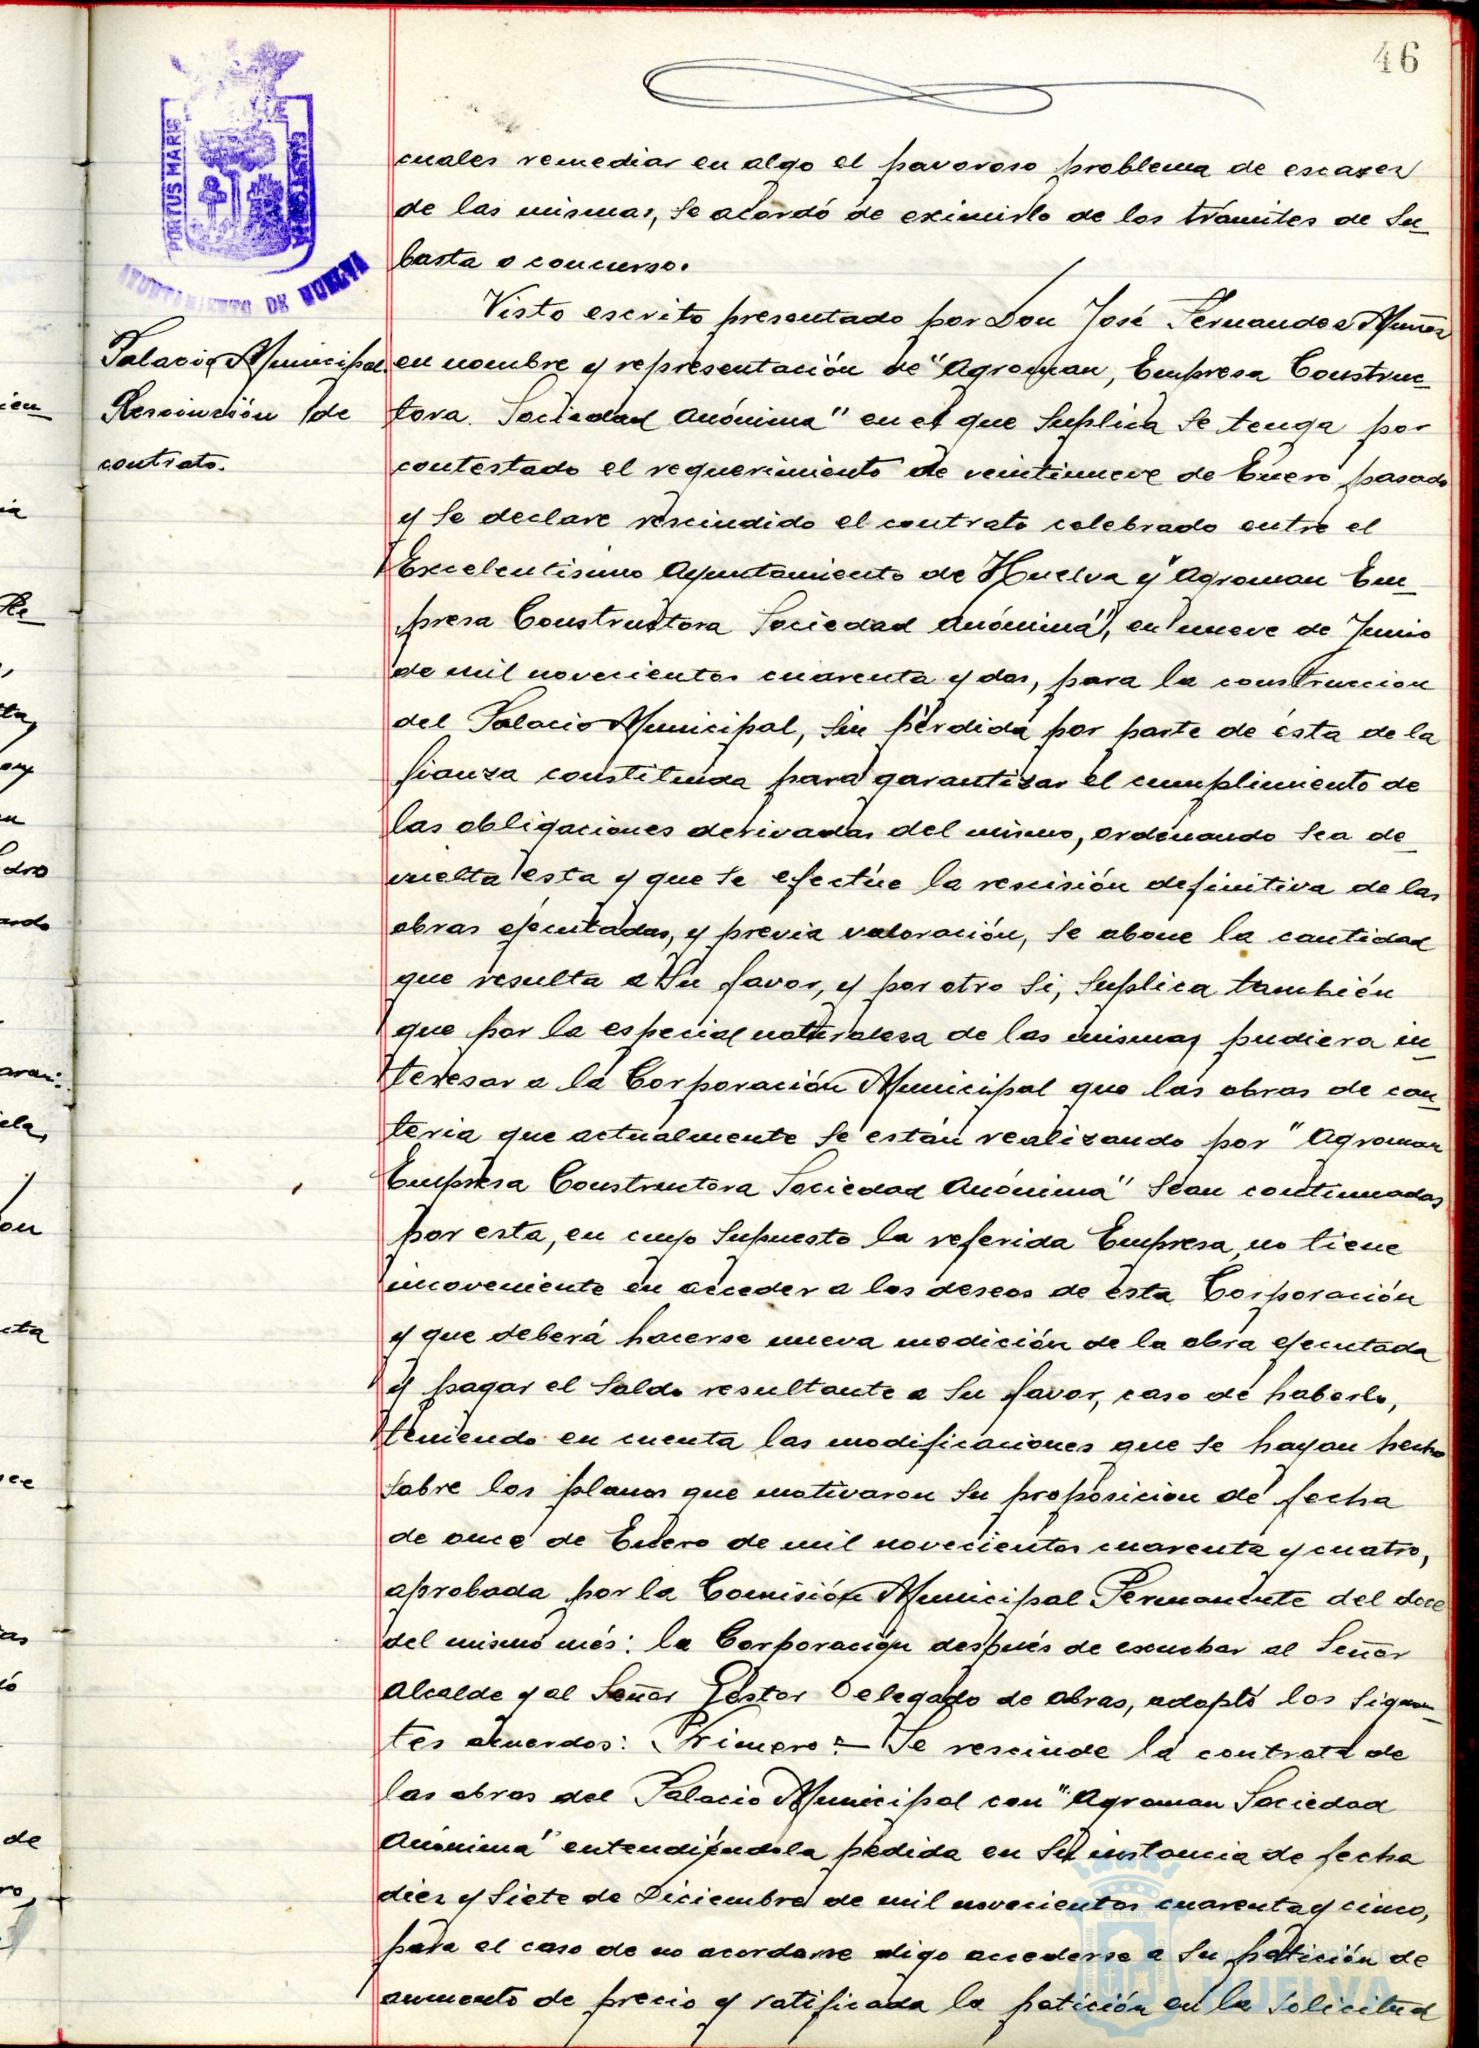 46
PORTUS MARIS
AYUNTAMIENTO DE HUELVA
Palacio Municipal.
Rescinción de
contrato.
cuales remediar en algo el pavoroso problema de escazes
de las mismas, se acordó de eximirlo de los trámites de Su-
basta o concurso.
Visto escrito presentado por Don José Fernandez Muñoz
en nombre y representación de "Agroman, Empresa Construc-
tora. Sociedad Anónima" en el que Suplica Se tenga por
contestado el requerimiento de veintinueve de Enero pasado
y Se declare rescindido el contrato celebrado entre el
Excelentisimo Ayuntamiento de Huelva y "Agroman Em-
presa Constructora Sociedad Anónima", en nueve de Junio
de mil novecientos cuarenta y dos, para la construccion
del Palacio Municipal, Sin pérdida por parte de ésta de la
fianza constituida para garantizar el cumplimiento de
las obligaciones derivadas del mismo, ordenando Sea de-
vuelta esta y que Se efectúe la rescisión definitiva de las
obras ejecutadas, y previa valoración, Se abone la cantidad
que resulta a Su favor, y por otro Si, Suplica también
que por la especial naturaleza de las mismas pudiera in-
teresar a la Corporación Municipal que las obras de can-
teria que actualmente Se están realizando por "Agroman
Empresa Constructora Sociedad Anónima" Sean continuadas
por esta, en cuyo Supuesto la referida Empresa, no tiene
incoveniente en acceder a los deseos de ésta Corporación
y que deberá hacerse nueva medición de la obra ejecutada
y pagar el Saldo resultante a Su favor, caso de haberlo,
teniendo en cuenta las modificaciones que Se hayan hecho
Sobre los planos que motivaron Su proposicion de fecha
de once de Enero de mil novecientos cuarenta y cuatro,
aprobada por la Comisión Municipal Permanente del doce
del mismo més: la Corporación después de escuchar al Señor
Alcalde y al Señor Gestor Delegado de Obras, adoptó los Siguien-
tes acuerdos: Primero:- Se rescinde la contrata de
las obras del Palacio Municipal con "Agroman Sociedad
Anónima" entendiéndola pedida en Su instancia de fecha
diez y Siete de Diciembre de mil novecientos cuarenta y cinco,
para el caso de no acordarse digo accederse a Su petición de
aumento de precio y ratificada la petición en la Solicitud
HUELVA